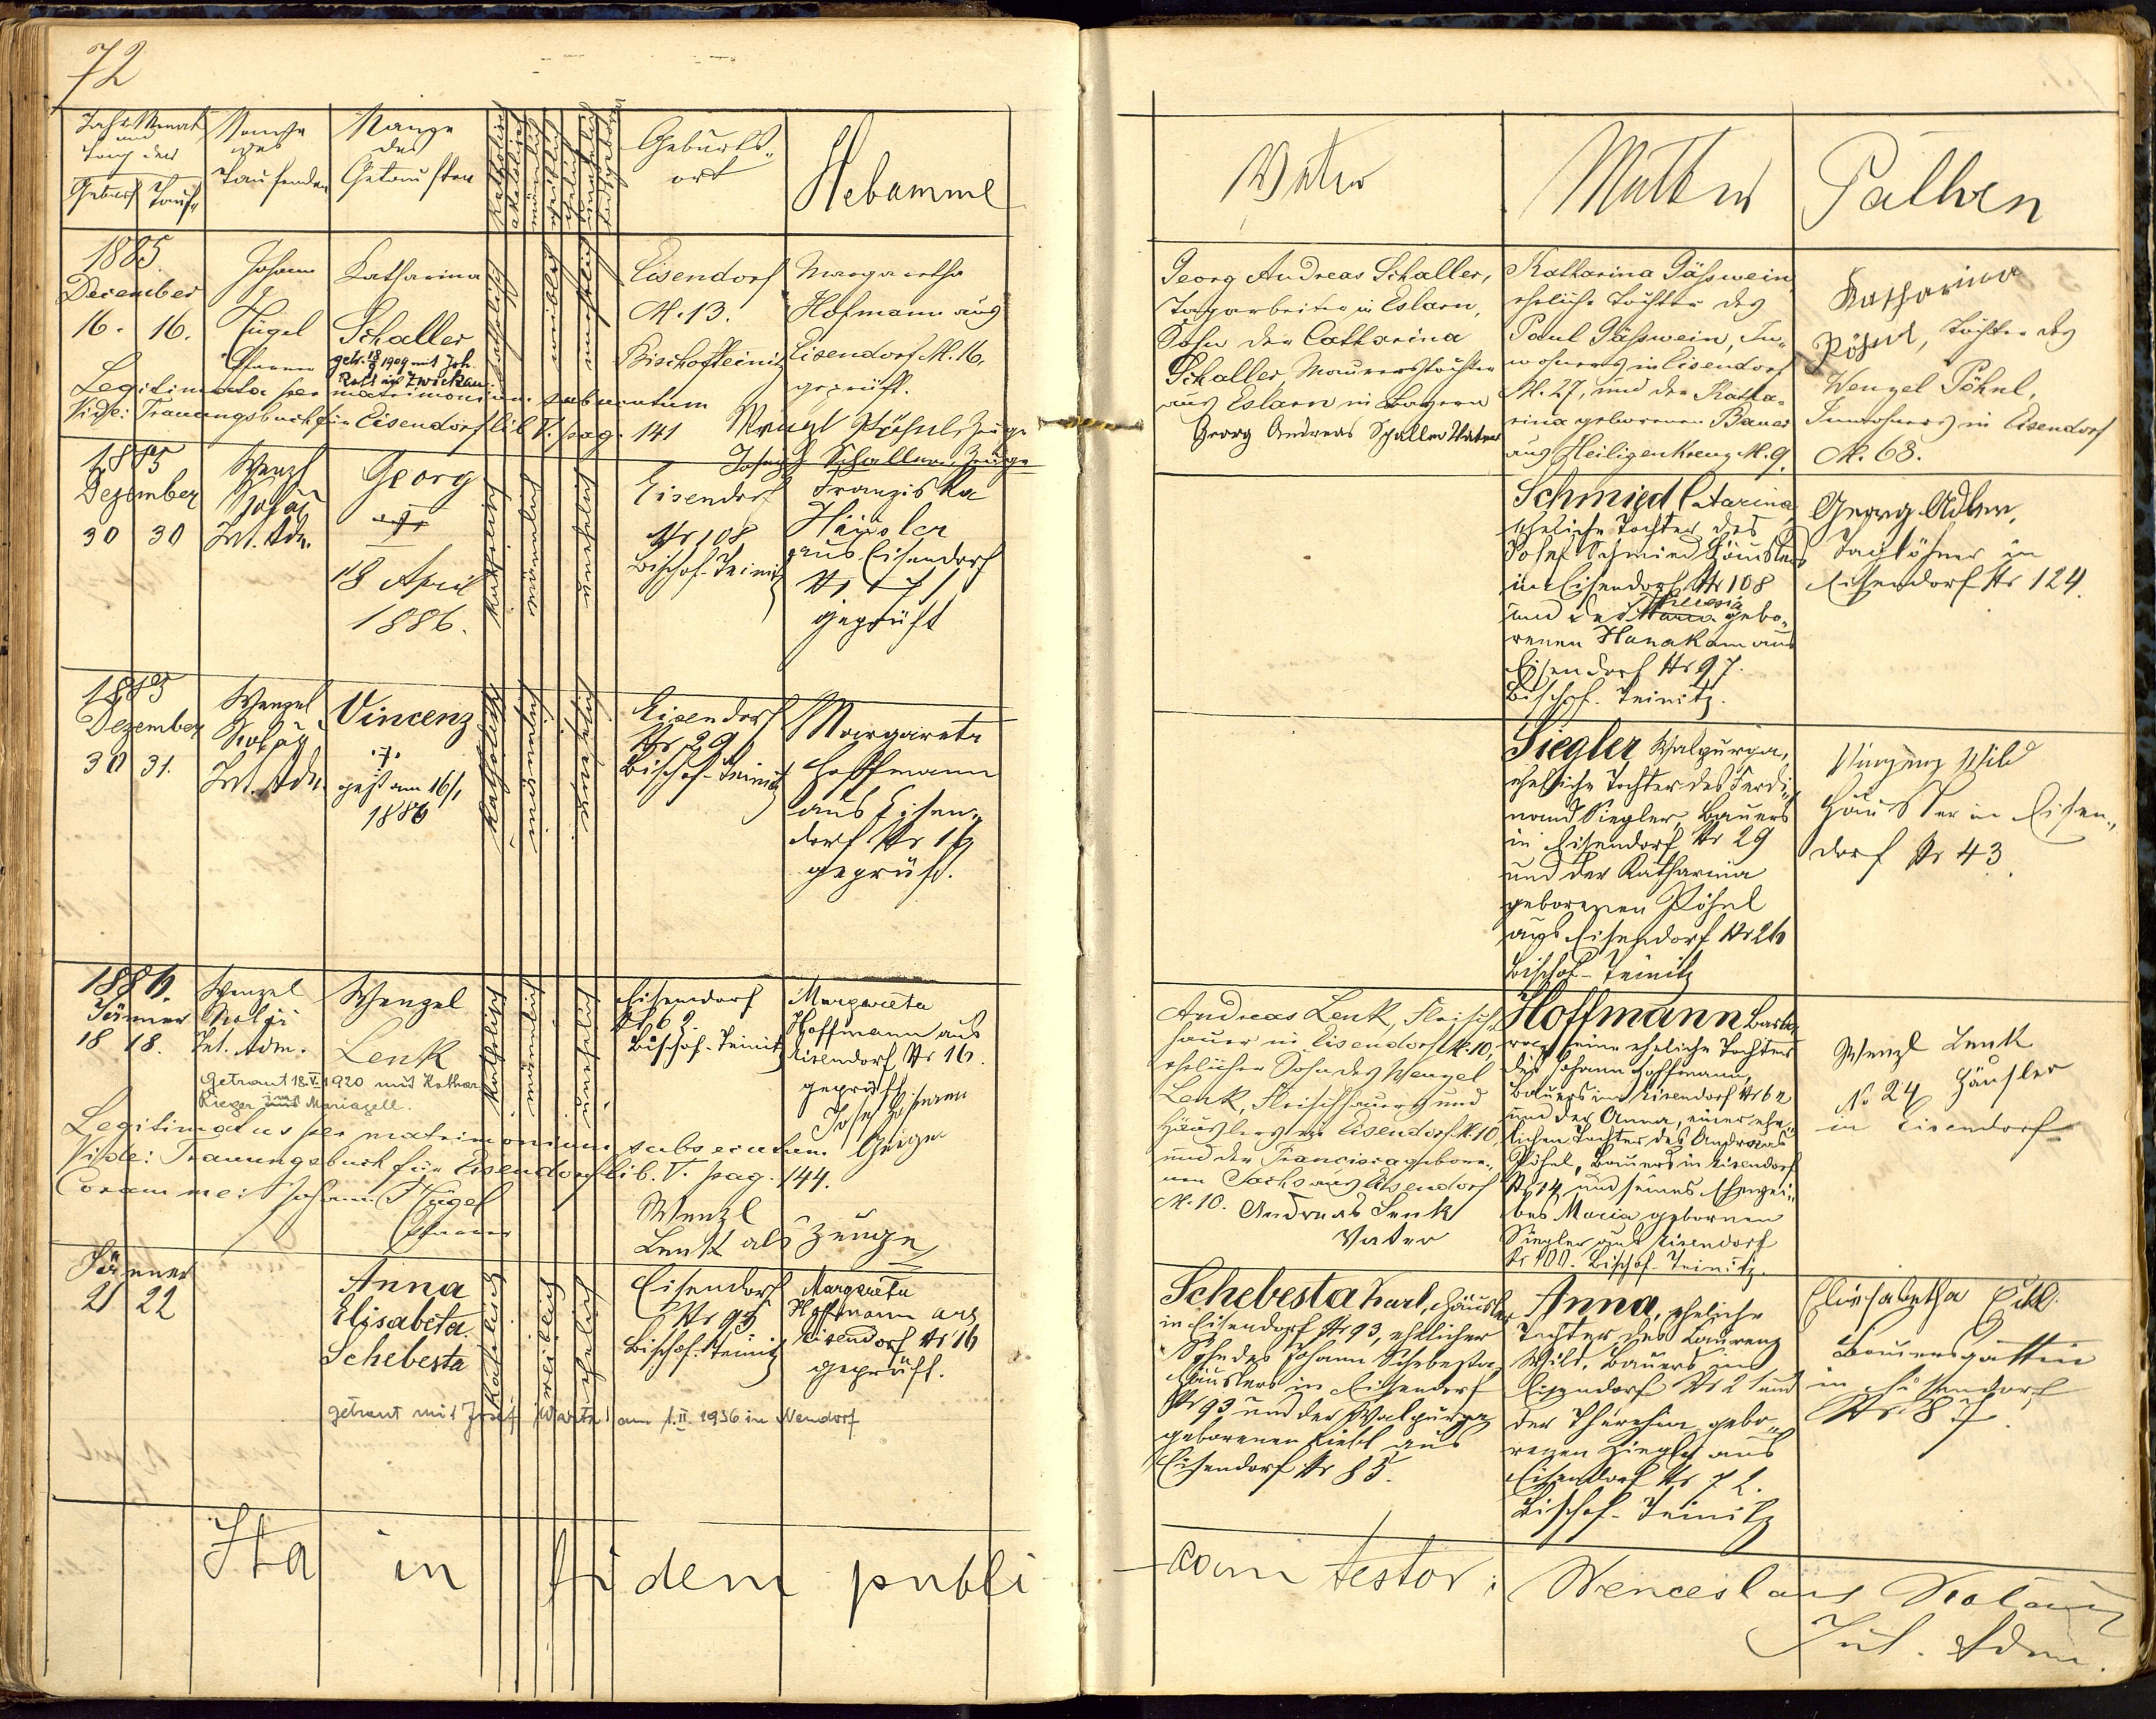 72
Jahr Monat
und
Tag der
Geburt
Taufe
Name
des
Taufenden
Name
des
Getauften
Geburts-
ort
Hebamme
1885
December
16. 16.
Johann
Hügel
Pfarrer
Katharina
Schaller
getr. 1909 mit Joh.
Zwickau
katholisch
weiblich
unehelich
Eisendorf
N. 13.
Bischofteinitz
Margaretha
Hofmann aus
Eisendorf N. 16.
geprüft.
Legitimata per matrimonium subsecutum
Vide: Trauungsbuch für Eisendorf lib. V. pag. 141
Wenzl Pöhnl, Zeuge
Joseph Schaller, Zeuge
1885
Dezember
30 30
Wenzl
Kolář
Int. Adm.
Georg
†
18 April
1886.
Eisendorf
Nr 108
Bischof-Teinitz
Franziska
Häusler
aus Eisendorf
Nr 71
geprüft
1885
Dezember
30 31.
Wenzel
Kolář
Int. Adm.
Vincenz
†
gest. am 16/1
1886
Eisendorf
Nr 29
Bischof-Teinitz
Margareta
Hoffmann
aus Eisen-
dorf Nr 16
geprüft.
1886.
Jänner
18 18.
Wenzel
Kolář
Int. Adm.
Wenzel
Lenk
Getraut 18.V.1920 mit Kathar.
Rieger in Mariazell.
Eisendorf
Nr 62.
Bischof-Teinitz
Margareta
Hoffmann aus
Eisendorf Nr 16.
geprüft
Zeuge
Legitimatus per matrimonium subsecutum
Vide: Trauungsbuch für Eisendorf lib. V. pag. 144.
Coram me: Johann Hügel
Pfarrer
Wenzl
Lenk als Zeuge
Jänner
21 22
Anna
Elisabeta
Schebesta
Eisendorf
Nr 93
Bischof-Teinitz
Margareta
Hoffmann aus
Eisendorf Nr 16
geprüft.
getraut mit Josef am 1.II.1936 in Neudorf
Ita in fidem publi
Vater
Mutter
Pathen
Georg Andreas Schaller,
Tagarbeiter in Eslarn,
Sohn der Catharina
Schaller, Maurerstochter
aus Eslarn in Bayern
Georg Andreas Schaller Vater
Katharina Päßwein,
eheliche Tochter des
Paul Päßwein, In-
wohners in Eisendorf
N. 27, und der Katha-
rina geborenen Bauer
aus Heiligenkreuz N. 9.
Katharina
Pöhnl, Tochter des
Wenzel Pöhnl,
Inwohners in Eisendorf
N. 68.
Schmied Catarina,
eheliche Tochter des
Josef Schmied Häuslers
in Eisendorf Nr 108
und der Maria Theresia gebo-
renen Hanakam aus
Eisendorf Nr 97.
Bischof-Teinitz.
Georg Adler,
Taglöhner in
Eisendorf Nr 124.
Siegler Walpurga,
eheliche Tochter des Ferdi-
nand Siegler Bauers
in Eisendorf Nr 29
und der Katharina
geborenen Pöhnl
aus Eisendorf Nr 26
Bischof-Teinitz
Vinzenz Wild
Häusler in Eisen-
dorf Nr 43.
Andreas Lenk, Fleisch-
hauer in Eisendorf N. 10,
ehelicher Sohn des Wenzel
Lenk, Fleischhauers und
Häuslers in Eisendorf N. 10
und der Francisca gebore-
nen Sachs aus Eisendorf
N. 10. Andreas Lenk
Vater
Hoffmann Barba-
ra, eine eheliche Tochter
des Johann Hoffmann,
Bauers in Eisendorf Nr 62
und der Anna, einer ehe-
lichen Tochter des Andreas
Pöhnl, Bauers in Eisendorf
Nr 14 und seines Ehewei-
bes Maria gebornen
Siegler aus Eisendorf
Nr 100. Bischof-Teinitz.
Wenzl Lenk
No 24 Häusler
in Eisendorf
Schebesta Karl, Häusler
in Eisendorf Nr 93, ehelicher
Sohn des Johann Schebesta,
Häuslers in Eisendorf
Nr 93 und der Walpurga
geborenen Liebl aus
Eisendorf Nr 85.
Anna, eheliche
Tochter des Laurenz
Wild, Bauers in
Eisendorf Nr 21 und
der Theresia gebo-
renen Ziegler aus
Eisendorf Nr 72.
Bischof-Teinitz
Elisabetha
Bauersgattin
in Eisendorf
Nr 87.
cam testor: Wenceslaus Kolář
Int. Adm.